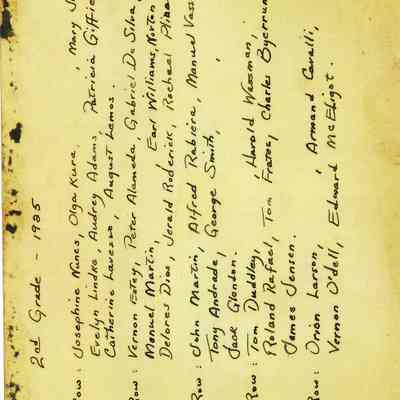 2nd Grade - 1935
Row: Josephine Nunes, Olga Kura, Mary
Evelyn Lindke, Audrey Adams, Patricia Giffie
Catherine Lavezzo, August Lemos.
Row: Vernon Estey, Peter Alameda, Gabriel De Silva,
Manuel Martin, Earl Williams, Norton
Delores Dias, Jerald Roderick, Rachael
Row: John Martin, Alfred Rabiera, Manuel Vass
Tony Andrade, George Smith,
Jack Glendon.
Row: Tom Duddley, Harold Wessman,
Roland Rafael, Tom Fratos, Charles Byerrum
James Jensen.
Row: Orion Larson, Armand Cavalli,
Vernon O'dell, Edward McElligot.